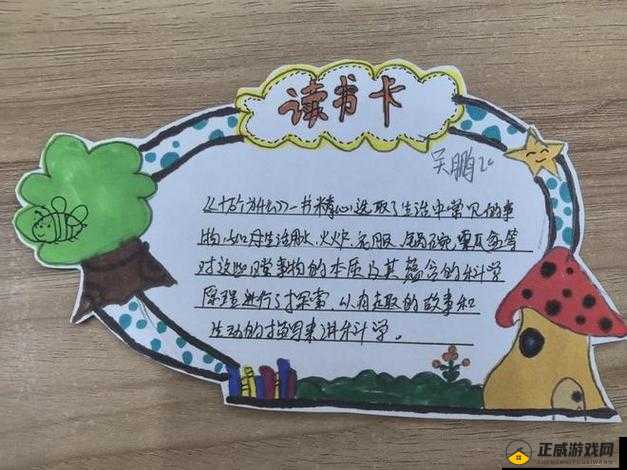 读书卡
吴鹏
一书精心选取了生活中常见的事
物,如用生活用水、火炉、衣服、锅碗瓢盆等
对这些日常事物的本质及其蕴含的科学
原理进行了探索,以有趣的故事和
生动的描写来讲科学。
正威游戏网